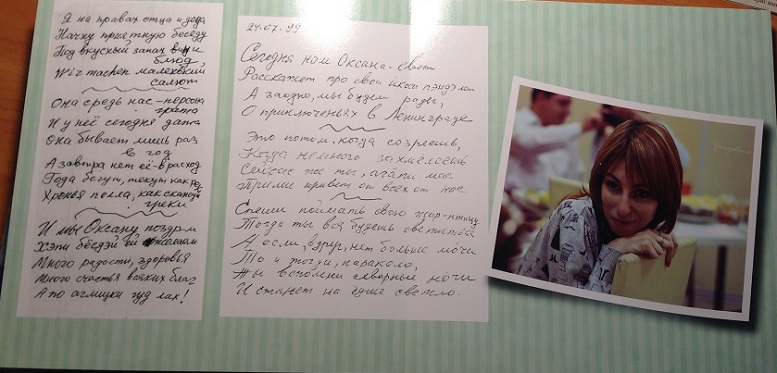 Я на правах отца и деда
Начну приятную беседу
Под вкусный запах вин и
блюд
Wir machen маленький
салют
Она средь нас - персона
грата
И у неё сегодня дата
Она бывает лишь раз
в год
А завтра нет её - в расход
Года бегут, текут как
Хронья пелла, как сказали
греки
И мы Оксану поздр
Хэпи бёсдэй ей желаем
Много радости, здоровья
Много счастья всяких благ
А по аглицки гуд лак!
24.07.99
Сегодня нам Оксана-свет
Расскажет про свои
А заодно, мы будем рады,
О приключеньях в Ленинграде
Это потом, когда созреешь,
Когда немного захмелеешь
Сейчас же ты, агапи мас
Прими привет от всех от нас
Спеши поймать свою жар-птицу
Тогда ты вся будешь светиться
А если, вдруг, нет больше мочи
То и тогда, паракало,
Ты вспомни северные ночи
И станет на душе светло.